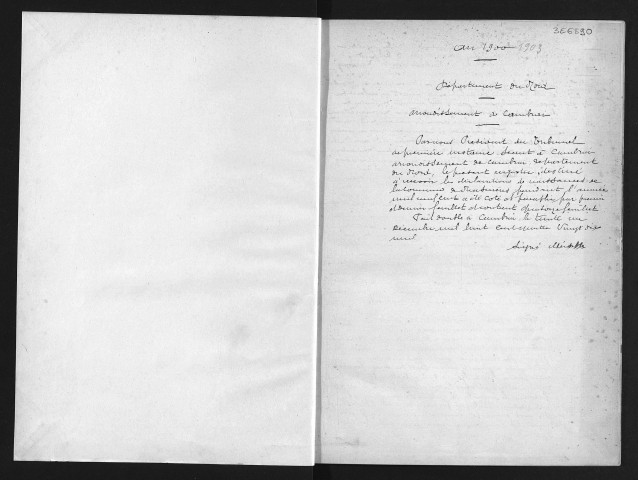 3E6830
an 1900 1903
Département du Nord
arrondissement de Cambrai
Par nous Président du Tribunal
de première instance séant à Cambrai
arrondissement de Cambrai, département
du Nord, le présent registre, destiné
à recevoir les déclarations de naissances de
la commune de pendant l'année
mil neuf cent a été coté et paraphé par premier
et dernier feuillet et contient feuillets
Fait double à Cambrai le trente un
Décembre mil huit cent quatre Vingt dix
neuf
Signé